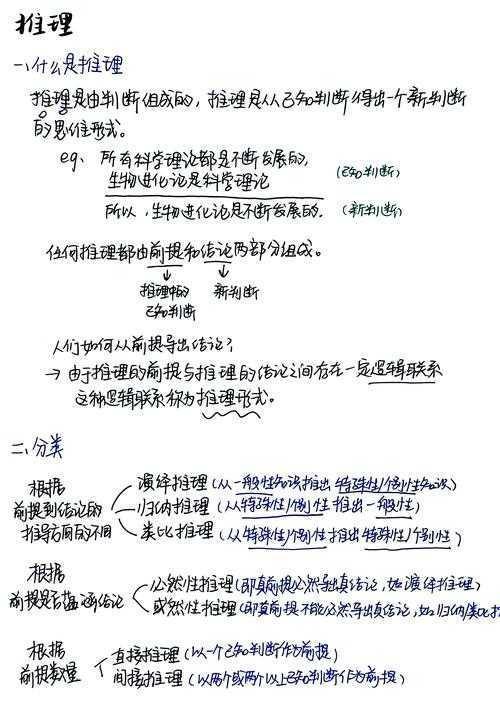 推理
一、什么是推理
推理是由判断组成的，推理是从已知判断得出一个新判断
的思维形式。
eg、所有科学理论都是不断发展的，
生物进化论是科学理论 （已知判断）
所以，生物进化论是不断发展的. （新判断）
任何推理都由前提和结论两部分组成。
推理中的 新判断
已知判断
人们如何从前提导出结论？
→ 由于推理的前提与推理的结论之间存在一定逻辑联系
这种逻辑联系称为推理形式。
二、分类
根据
前提到结论的
推导方向的不同
演绎推理（从一般性知识推出特殊性/个别性知识）
归纳推理（从特殊性/个别性推出一般性）
类比推理（从特殊性/个别性推出特殊性/个别性）
根据
前提是否蕴涵结论
必然性推理（即真前提必然导真结论，如演绎推理）
或然性推理（即真前提不能必然导出真结论，如归纳/类比推
根据
前提数量
直接推理（以一个已知判断作为前提）
间接推理（以两个或两个以上已知判断作为前提）